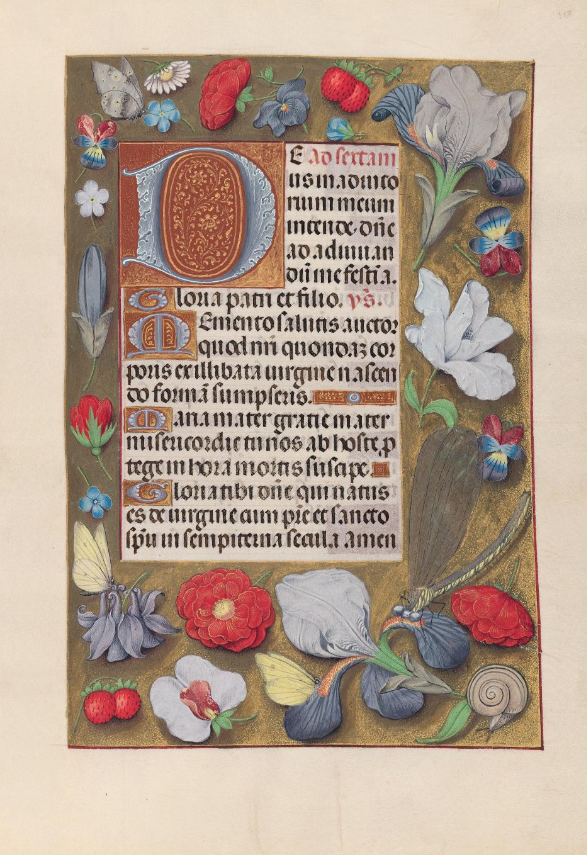 DE ad sextam
us in adiuto
rium meum
intende. dn̄e
ad adiuuan
dū me festīa.
Gloria patri et filio. ỹs.
Memento salutis auctor
quod nr̄i quondaꝫ cor
poris ex illibata uirgine nascen
do formā sumpseris.
Maria mater gratie mater
misericordie tu nos ab hoste, p
tege in hora mortis suscipe.
Gloria tibi dn̄e qui natus
es de uirgine cum pr̄e et sancto
sp̄u in sempiterna secula amen